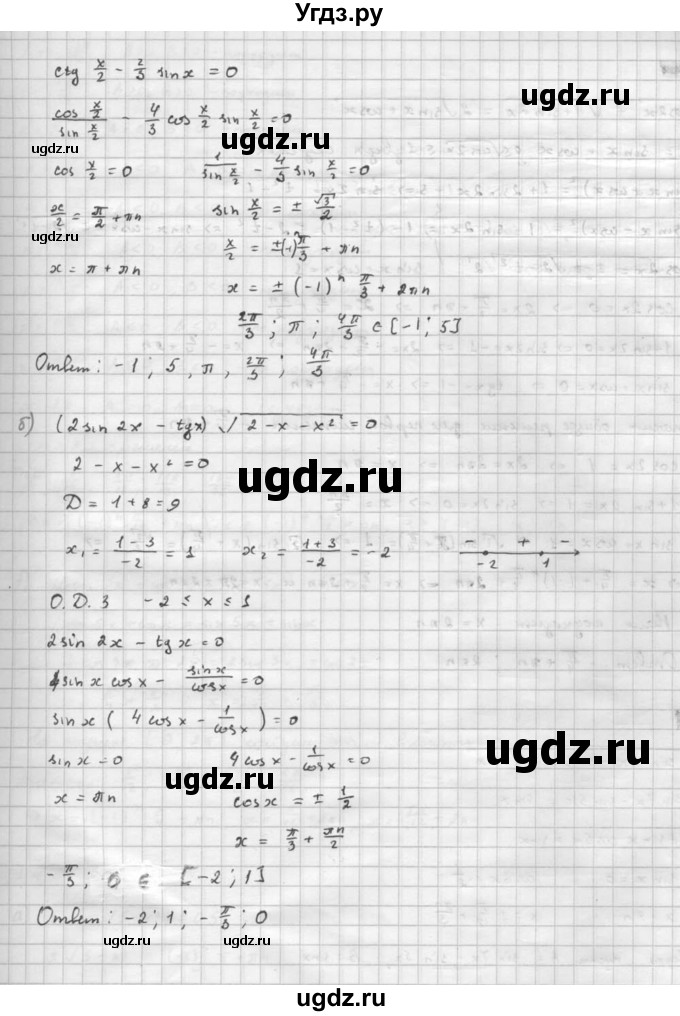 Угдз.ру
ctg x/2 - 2/3 sin x = 0
cos x/2 / sin x/2 - 4/3 cos x/2 sin x/2 = 0
ugdz.ru ugdz.ru
cos x/2 = 0 1/sin x/2 - 4/3 sin x/2 = 0
x/2 = π/2 + πn sin x/2 = ± √3/2
x/2 = ±(-1)ⁿ π/3 + πn
ugdz.ru ugdz.ru
x = π + πn x = ± (-1)ⁿ π/3 + 2πn
2π/3 ; π ; 4π/3 ∈ [-1 ; 5]
Ответ: -1 ; 5 , π , 2π/3 ; 4π/3
ugdz.ru
б) (2 sin 2x - tgx) √(2 - x - x²) = 0
2 - x - x² = 0
ugdz.ru ugdz.ru
D = 1 + 8 = 9
x₁ = (1 - 3)/-2 = 1 x₂ = (1 + 3)/-2 = -2 - + -
-2 1
О.Д.З -2 ≤ x ≤ 1
ugdz.ru
2sin 2x - tg x = 0
4sin x cos x - sin x/cos x = 0
ugdz.ru
sin x ( 4 cos x - 1/cos x ) = 0
ugdz.ru
sin x = 0 4 cos x - 1/cos x = 0
ugdz.ru
x = πn cos x = ± 1/2
x = π/3 + πn/2
-π/3 ; 0 ∈ [-2 ; 1]
ugdz.ru
Ответ: -2 ; 1 ; -π/3 ; 0
ugdz.ru ugdz.ru
ugdz.ru